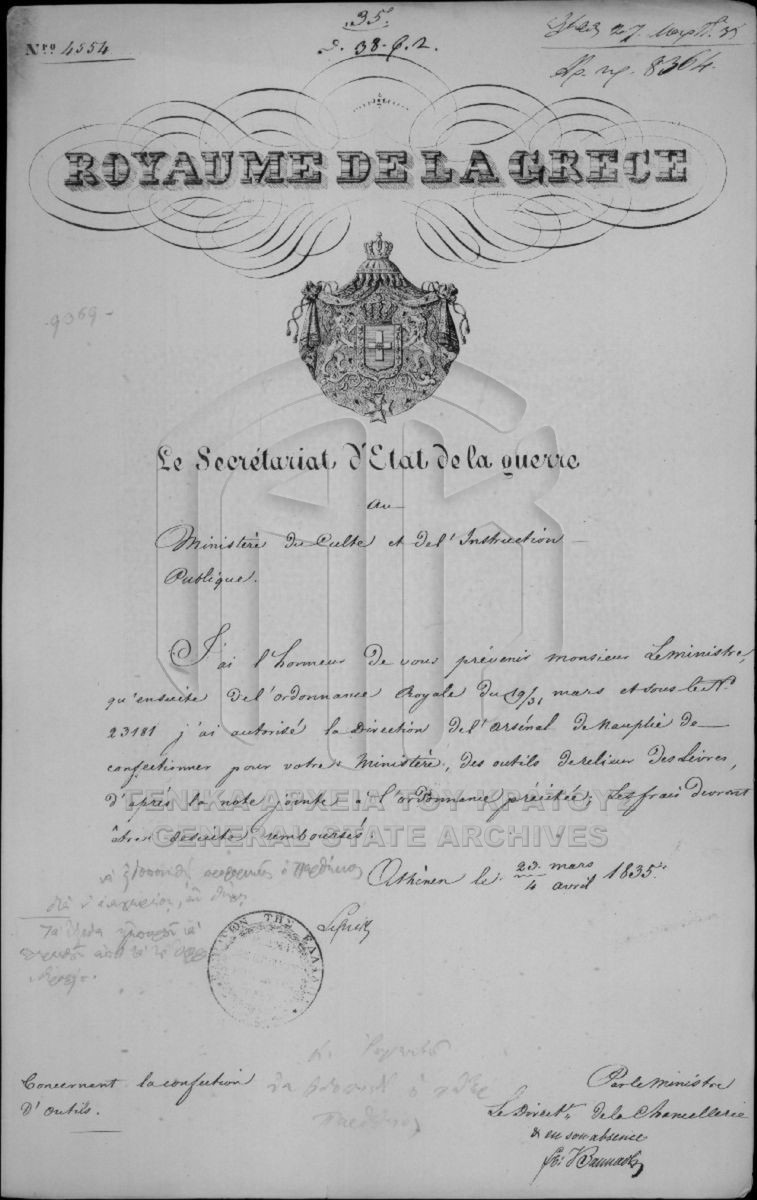 35.
Nro 4554
D. 38. 6. 2.
8364.
ROYAUME DE LA GRECE
9069
Le Secrétariat d'Etat de la guerre
au
Ministère du Culte et de l'Instruction
Publique.
J'ai l'honneur de vous prévenir monsieur Le ministre,
qu'ensuite de l'ordonnance Royale du 19/31 mars et sous le No.
23181 j'ai autorisé la Direction de l'arsénal de Nauplie de
confectionner pour votre Ministère, des outils de relieur des Livres,
D'après la note jointe à l'ordonnance précitée; Les frais devront
être desuite remboursés.
ΓΕΝΙΚΑ ΑΡΧΕΙΑ ΤΟΥ ΚΡΑΤΟΥΣ
GENERAL STATE ARCHIVES
Athènes le mars
4 avril 1835.
ΤΗΣ ΕΛΛΑΔΟΣ
Concernant la confection
D'outils.
Par le Ministre
Le Directr. de la Chancellerie
& en son absence